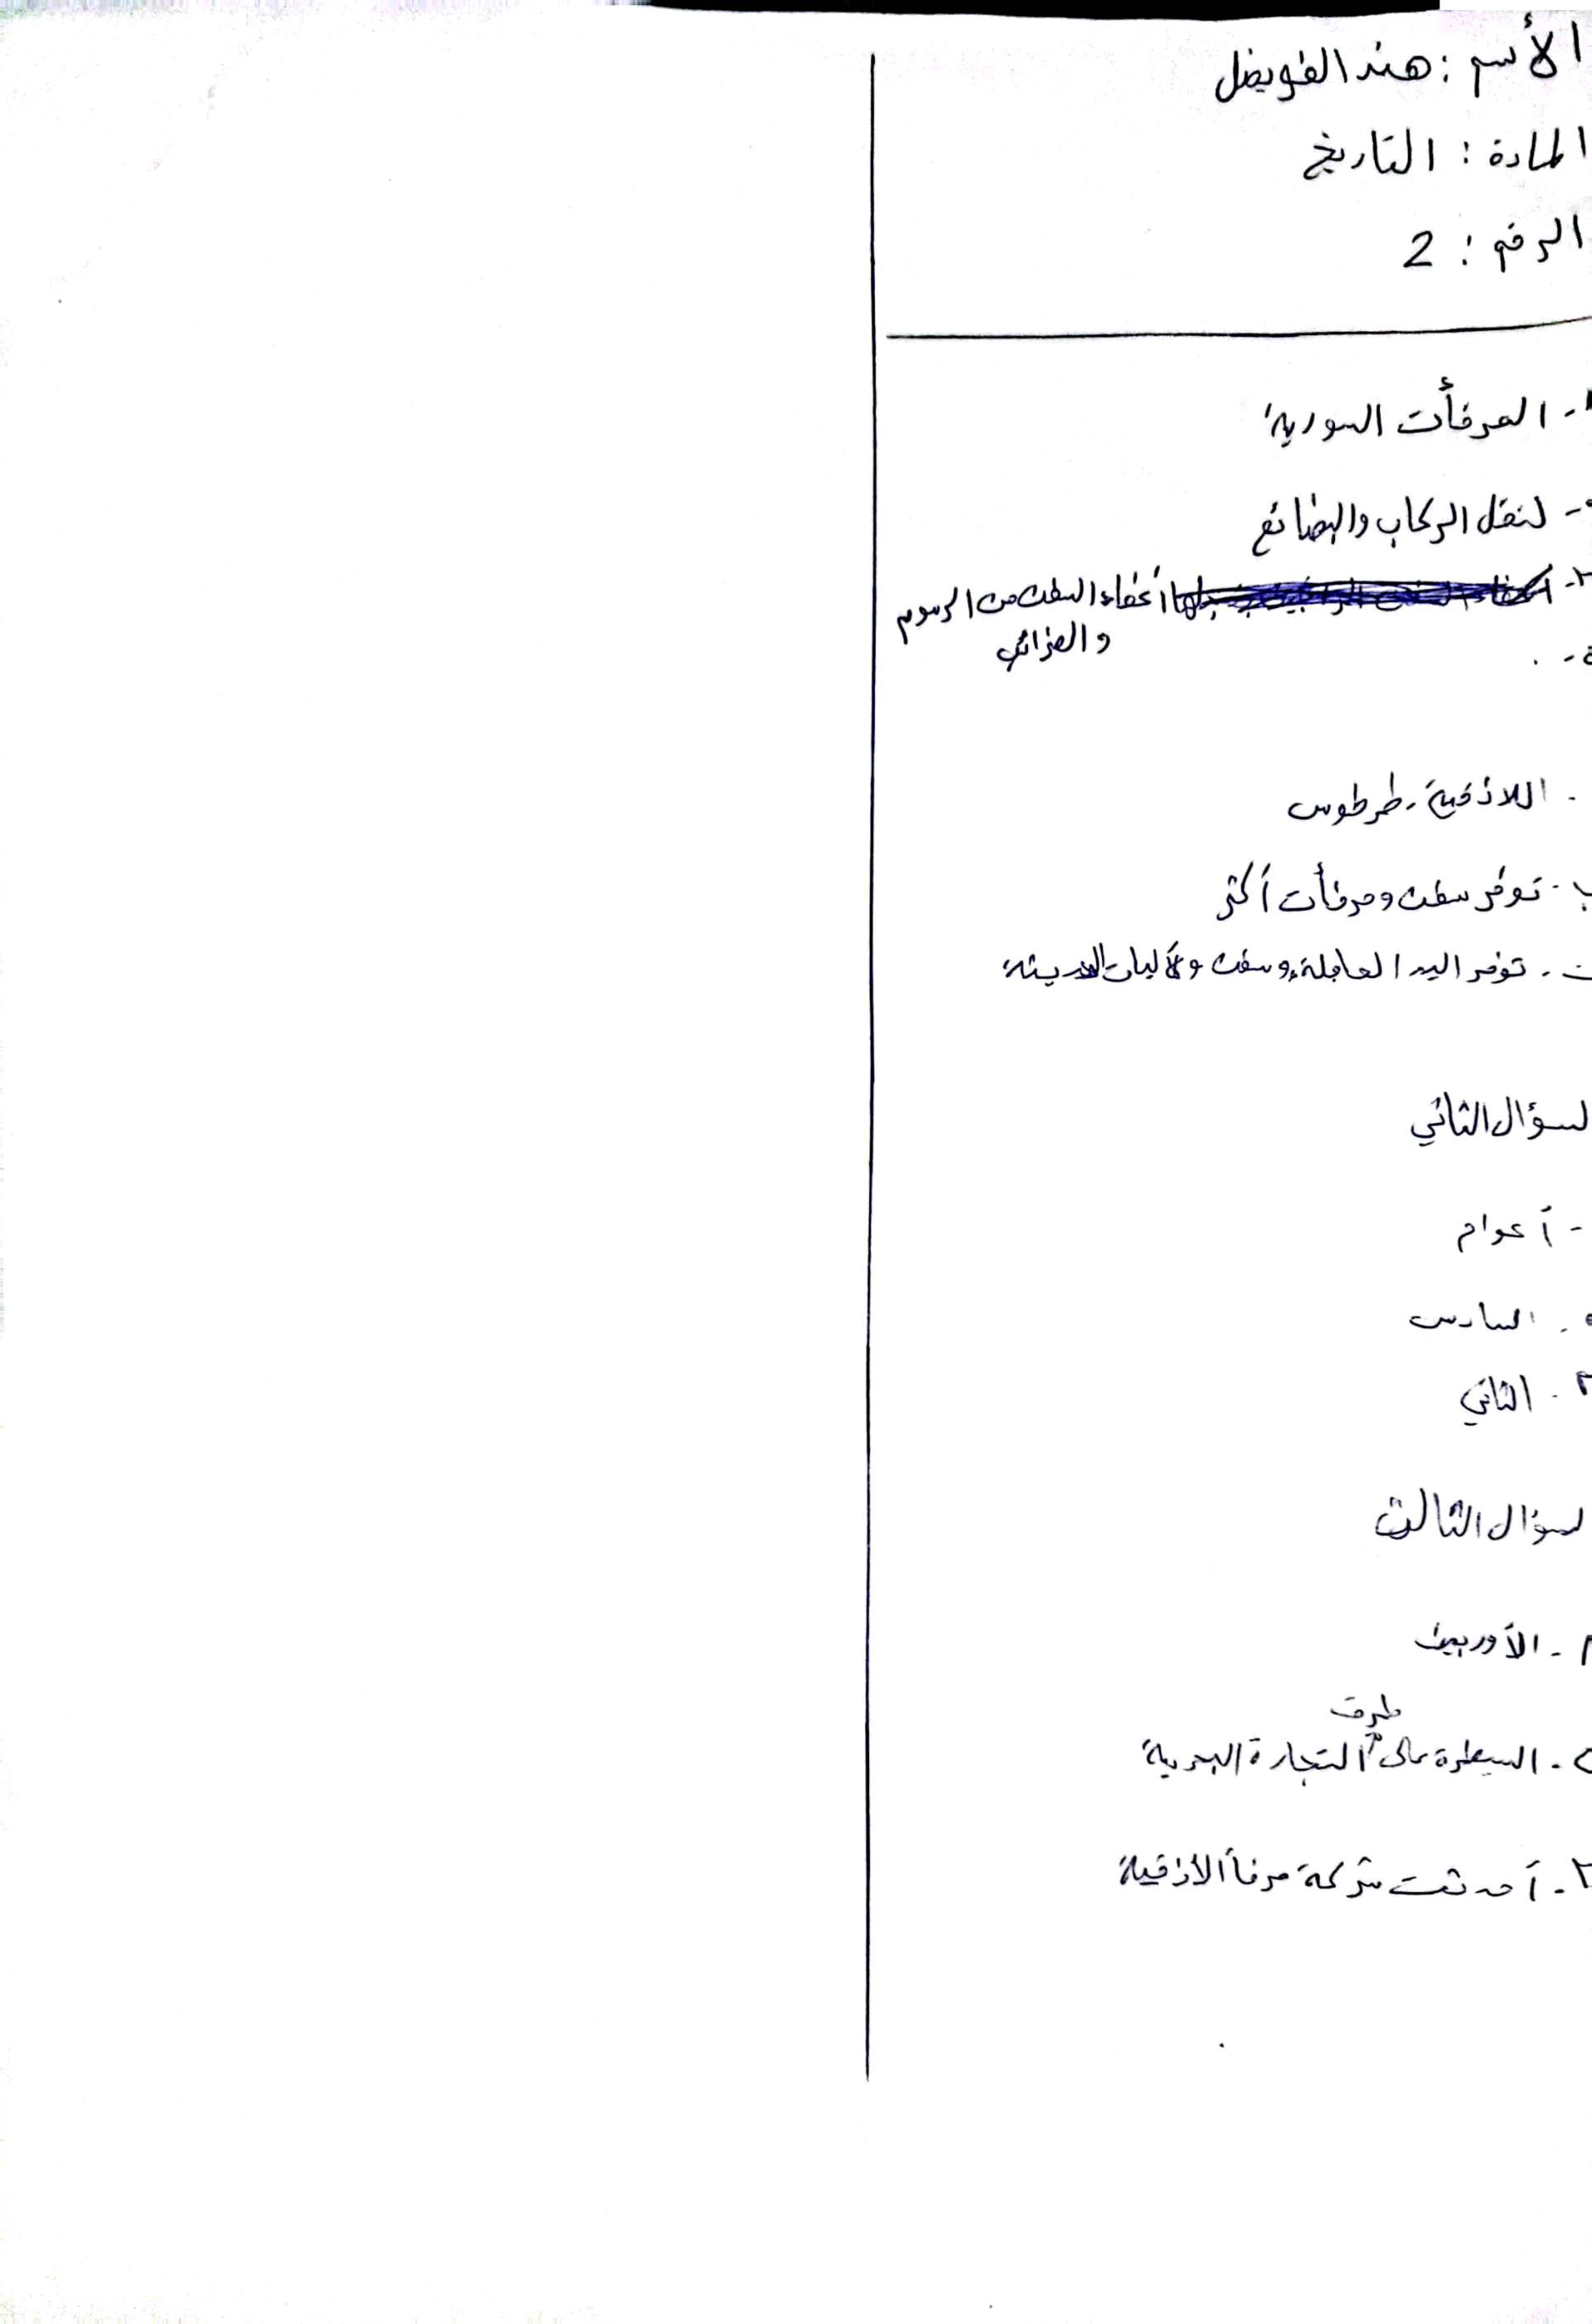 الأسم : هند الفويضل
المادة : التاريخ
الرقم : 2
- المرفأت السورية
- لنقل الركاب والبضائع
٣- أعفاء السفن من الرسوم
والضرائب
- اللاذقية - طرطوس
ب - توفر سفن ومرفأت أكثر
ت - توفر اليد العاملة وسفن والآليات الحديثة
لسؤال الثاني
- أعوام
- السادس
٣ - الثاني
لسؤال الثالث
١ - الأوربيين
طرق
- السيطرة على التجارة البحرية
٣ - أحدثت شركة مرفأ الاذقية